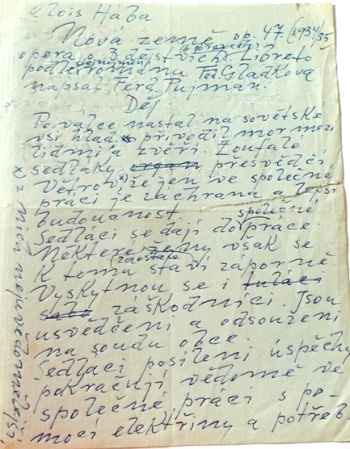 Alois Hába
Nová země op. 47 (1934/35
opera 3 dějství
podle románu Gladkova
napsal Fera. Pujman.
Děj
Po válce nastal na sovětské
vsi hlad přivodil mor mezi
lidmi a zvěří. Zoufalé
sedláky přesvědčí
Větrov x) že jen ve společné
práci je záchrana a lepší
budoucnost. společné
Sedláci se dají do práce.
Některé ženy však se
(zaostalé)
k tomu staví záporně
Vyskytnou se i
záškodníci. Jsou
usvědčeni a odsouzeni
na soudu obce.
Sedláci posíleni úspěchy
pokračují vědomě ve
společné práci s po-
mocí elektřiny a potřeb
x) z nich nejuvědomělejší